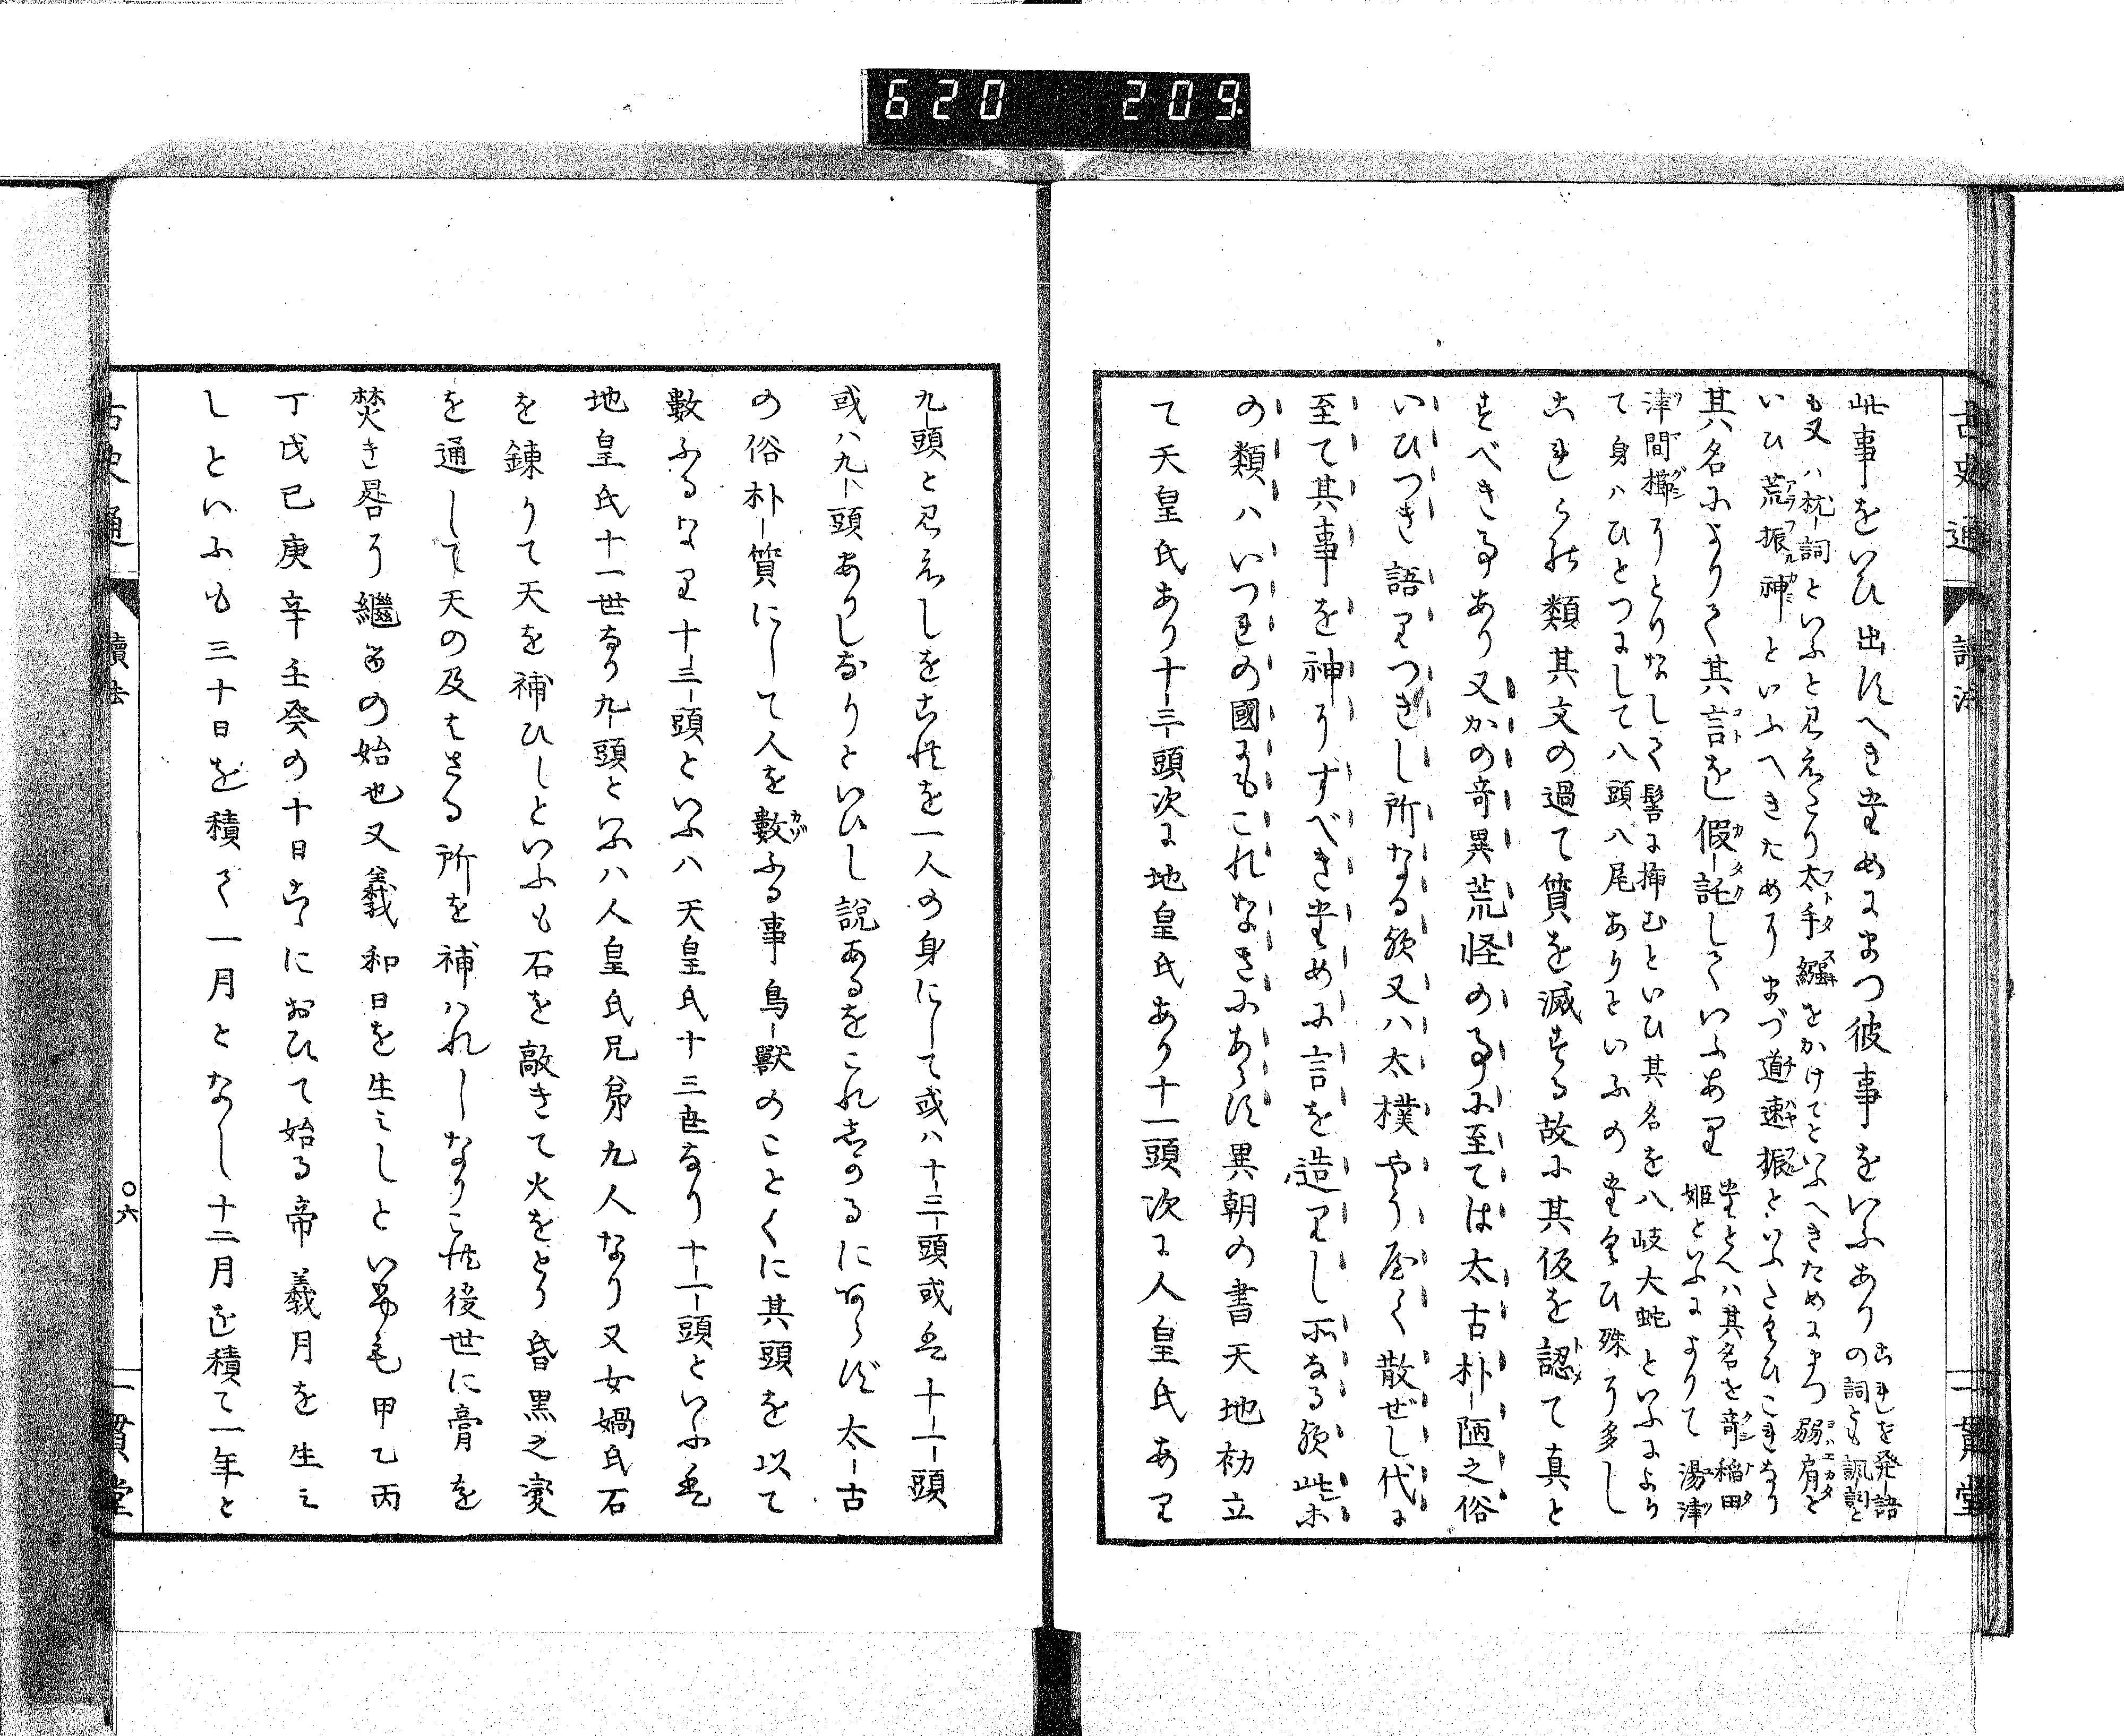 620 209
古史通 讀法
一貫堂
此事をいひ出すへきためにまつ彼事をいふあり
これを発語
の詞とも諷詞と
も又ハ枕詞といふと見えたり太手繦をかけてといふへきためにまつ弱肩と
いひ荒振神といふへきためにまづ道速振といふたくひこれなり
其名によりて其言を假託していふあり
たとへハ其名を奇稲田
姫といふによりて湯津
津間櫛にとりなして髻に挿むといひ其名を八岐大蛇といふより
て身ハひとつにして八頭八尾ありといふのたくひ殊に多し
これらの類其文の過て質を滅する故に其仮を認て真と
すべき事あり又かの奇異荒怪の事に至ては太古朴陋之俗
いひつき語りつぎし所なる歟又ハ太樸やうやく散ぜし代に
至て其事を神にすべきために言を造りし所なる歟此等
の類ハいつれの國にもこれなきにあらす異朝の書天地初立
て天皇氏あり十三頭次に地皇氏あり十一頭次に人皇氏あり
九頭と見えしをこれを一人の身にして或ハ十三頭或は十一頭
或ハ九頭ありしなりといひし説あるをこれしかるにあらず太古
の俗朴質にして人を數ふる事鳥獸のことくに其頭を以て
數ふるなり十三頭といふハ天皇氏十三世なり十一頭といふは
地皇氏十一世なり九頭といふハ人皇氏兄弟九人なり又女媧氏石
を錬りて天を補ひしといふも石を敲きて火をとり昏黒之變
を通して天の及はさる所を補ハれしなりこれ後世に膏を
焚き晷に繼くの始也又羲和日を生ミしといふも甲乙丙
丁戊己庚辛壬癸の十日こゝにおひて始る帝羲月を生ミ
しといふも三十日を積て一月となし十二月を積て一年と
古史通 讀法 〇六 一貫堂